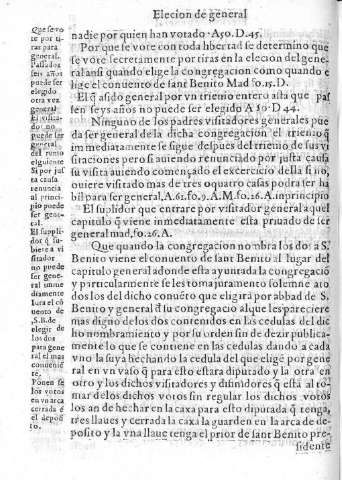 Elecion de general
nadie por quien han votado. A50. D. 45.
Por que se vote con toda libertad se determino que
se vote secretamente por tiras en la elecion del gene-
ral ansi quando elige la congregacion como quando e
lige el conuento de sant Benito Mad fo. 15. D.
El q̃ a sido general por vn trienio entero asta que pas
sen seys años no puede ser elegido A 50 D 44.
Ninguno de los padres visitadores generales pue
da ser general de la dicha congregacion el trienio q̃
immediatamente se sigue despues del trienio de sus vi
sitaciones pero si auiendo renunciado por justa causa
su visita auiendo començado el exercicio della si no
ouiere visitado mas de tres o quatro casas podra ser ha
bil para ser general. A. 61. fo. 9. A. M. fo. 26. A. in principio
El suplidor que entrare por visitador general aquel
capitulo q̃ viene inmediatamente esta priuado de ser
general mad, fo. 26. A.
Que quando la congregacion nombra los dos a S.
Benito viene el conuento de sant Benito al lugar del
capitulo general adonde esta ayuntada la congregació
y particularmente se les toma juramento solemne a to
dos los del dicho conuéto que eligira por abbad de S.
Benito y general d̃ su congregacio al que les pareciere
mas digno de los dos contenidos en las cedulas del dic
ho nombramiento y por su orden sin de dezir publica
mente lo que se contiene en las cedulas dando a cada
vno la suya hechando la cedula del que elige por gene
ral en vn vaso q̃ para esto estara diputado y la otra en
otro y los dichos visitadores y difinidores q̃ esta al to-
mar de los dichos votos sin regular los dichos votos
los an de hechar en la caxa para esto diputada q̃ tenga
tres llaues y cerrada la caxa la guarden en la arca de de-
posito y la vna llaue tenga el prior de sant Benito pre-
sidente
Que se vo
te por ti-
ras para
general.
Passados
seis años
puede ser
elegido
otra vez
general
El visita-
dor no
puede ser
general
del mismo
siguiente
Si por jus
ta causa
renuncia
al princi-
pio puede
ser gene-
ral.
El supli-
dor q̃ su-
biere a vi
sitador
no puede
ser gene
ral imme
diamente
Iura el cõ
uento de
.S.B. de
elegir de
los dos
para gene
ral el mas
conueni-
te.
Ponen se
los votos
en vn arca
cerrada é
el depos-
ito.